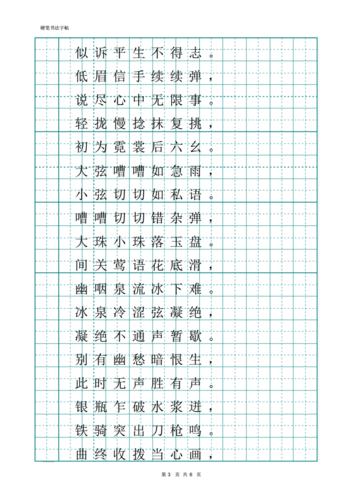 硬笔书法字帖
似诉平生不得志。
低眉信手续续弹，
说尽心中无限事。
轻拢慢捻抹复挑，
初为霓裳后六幺。
大弦嘈嘈如急雨，
小弦切切如私语。
嘈嘈切切错杂弹，
大珠小珠落玉盘。
间关莺语花底滑，
幽咽泉流冰下难。
冰泉冷涩弦凝绝，
凝绝不通声暂歇。
别有幽愁暗恨生，
此时无声胜有声。
银瓶乍破水浆迸，
铁骑突出刀枪鸣。
曲终收拨当心画，
第 3 页 共 6 页